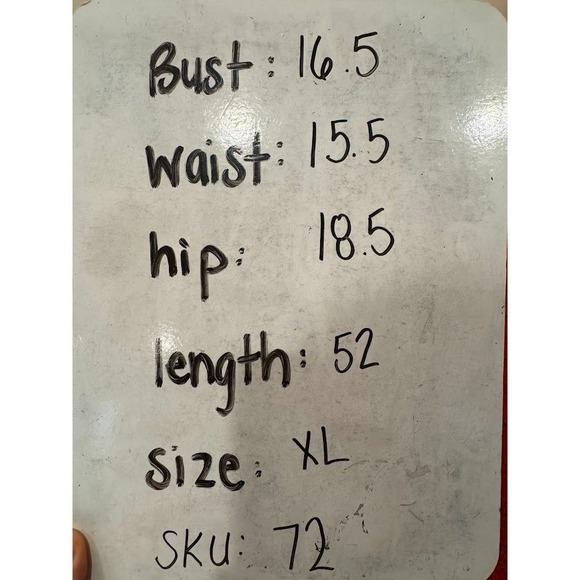 Bust: 16.5
waist: 15.5
hip: 18.5
length: 52
size: XL
SKU: 72